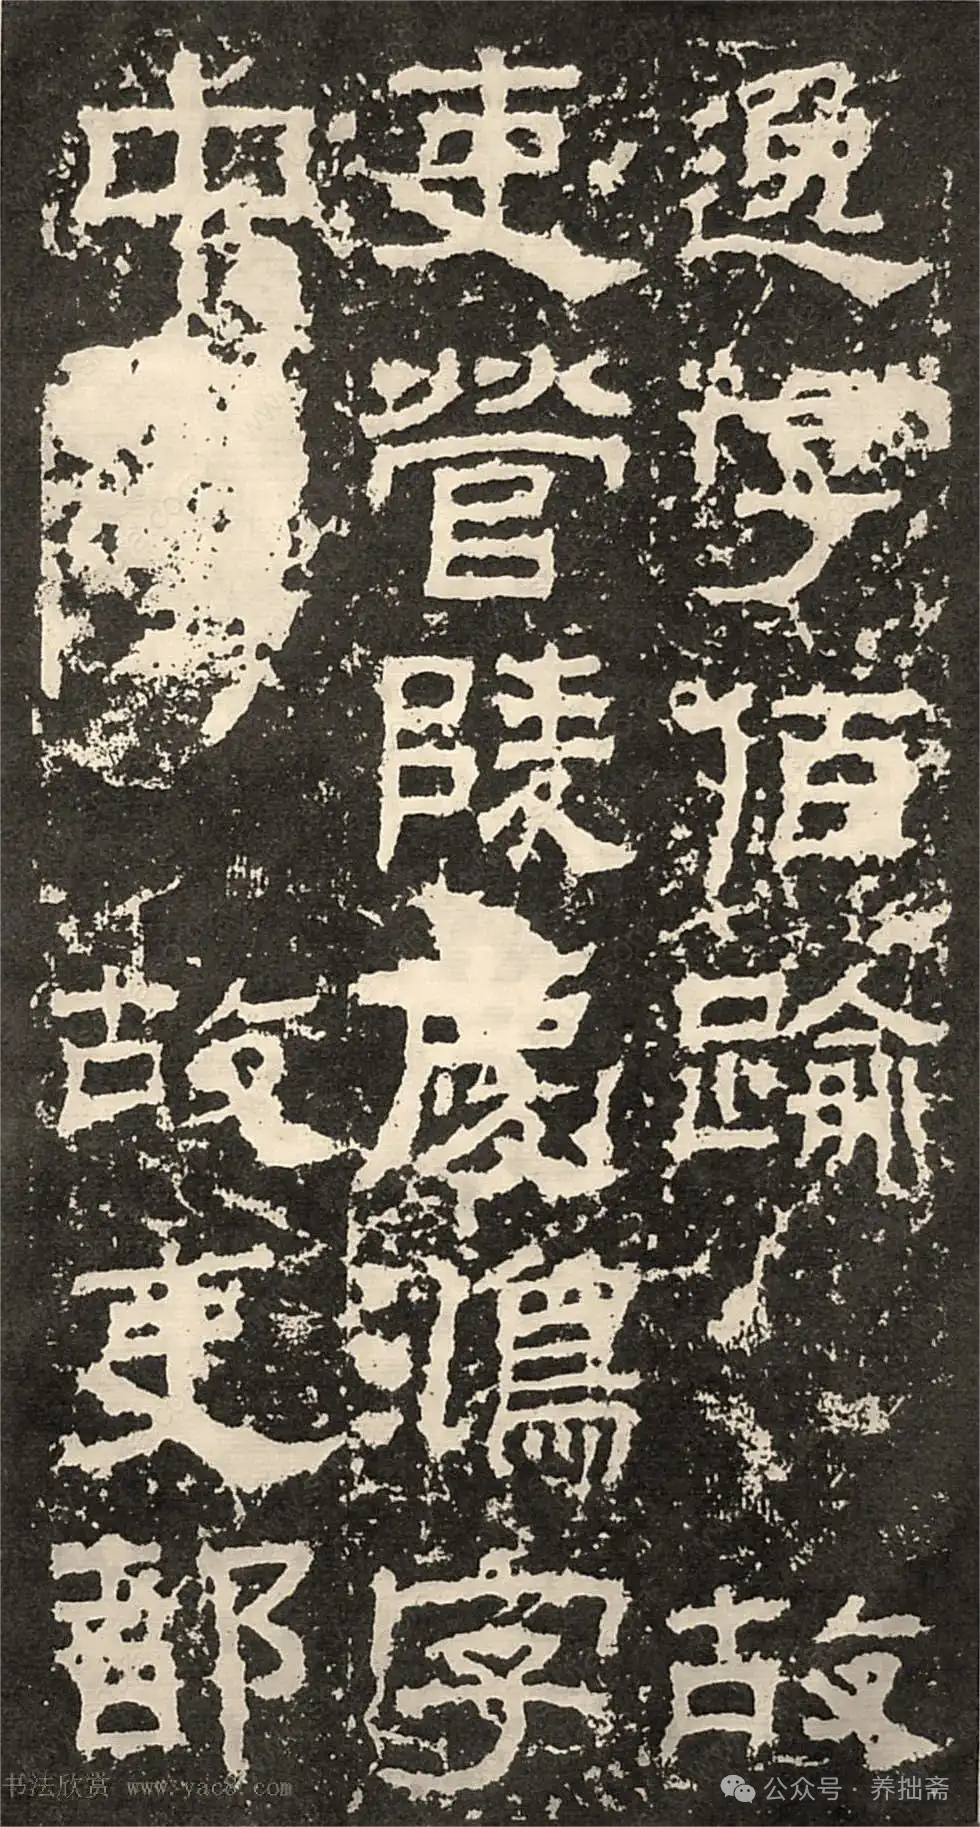 逸字佰踰故
吏營陵慶鴻字
中故吏都
书法欣赏 www.yac8.com
公众号·养拙斋